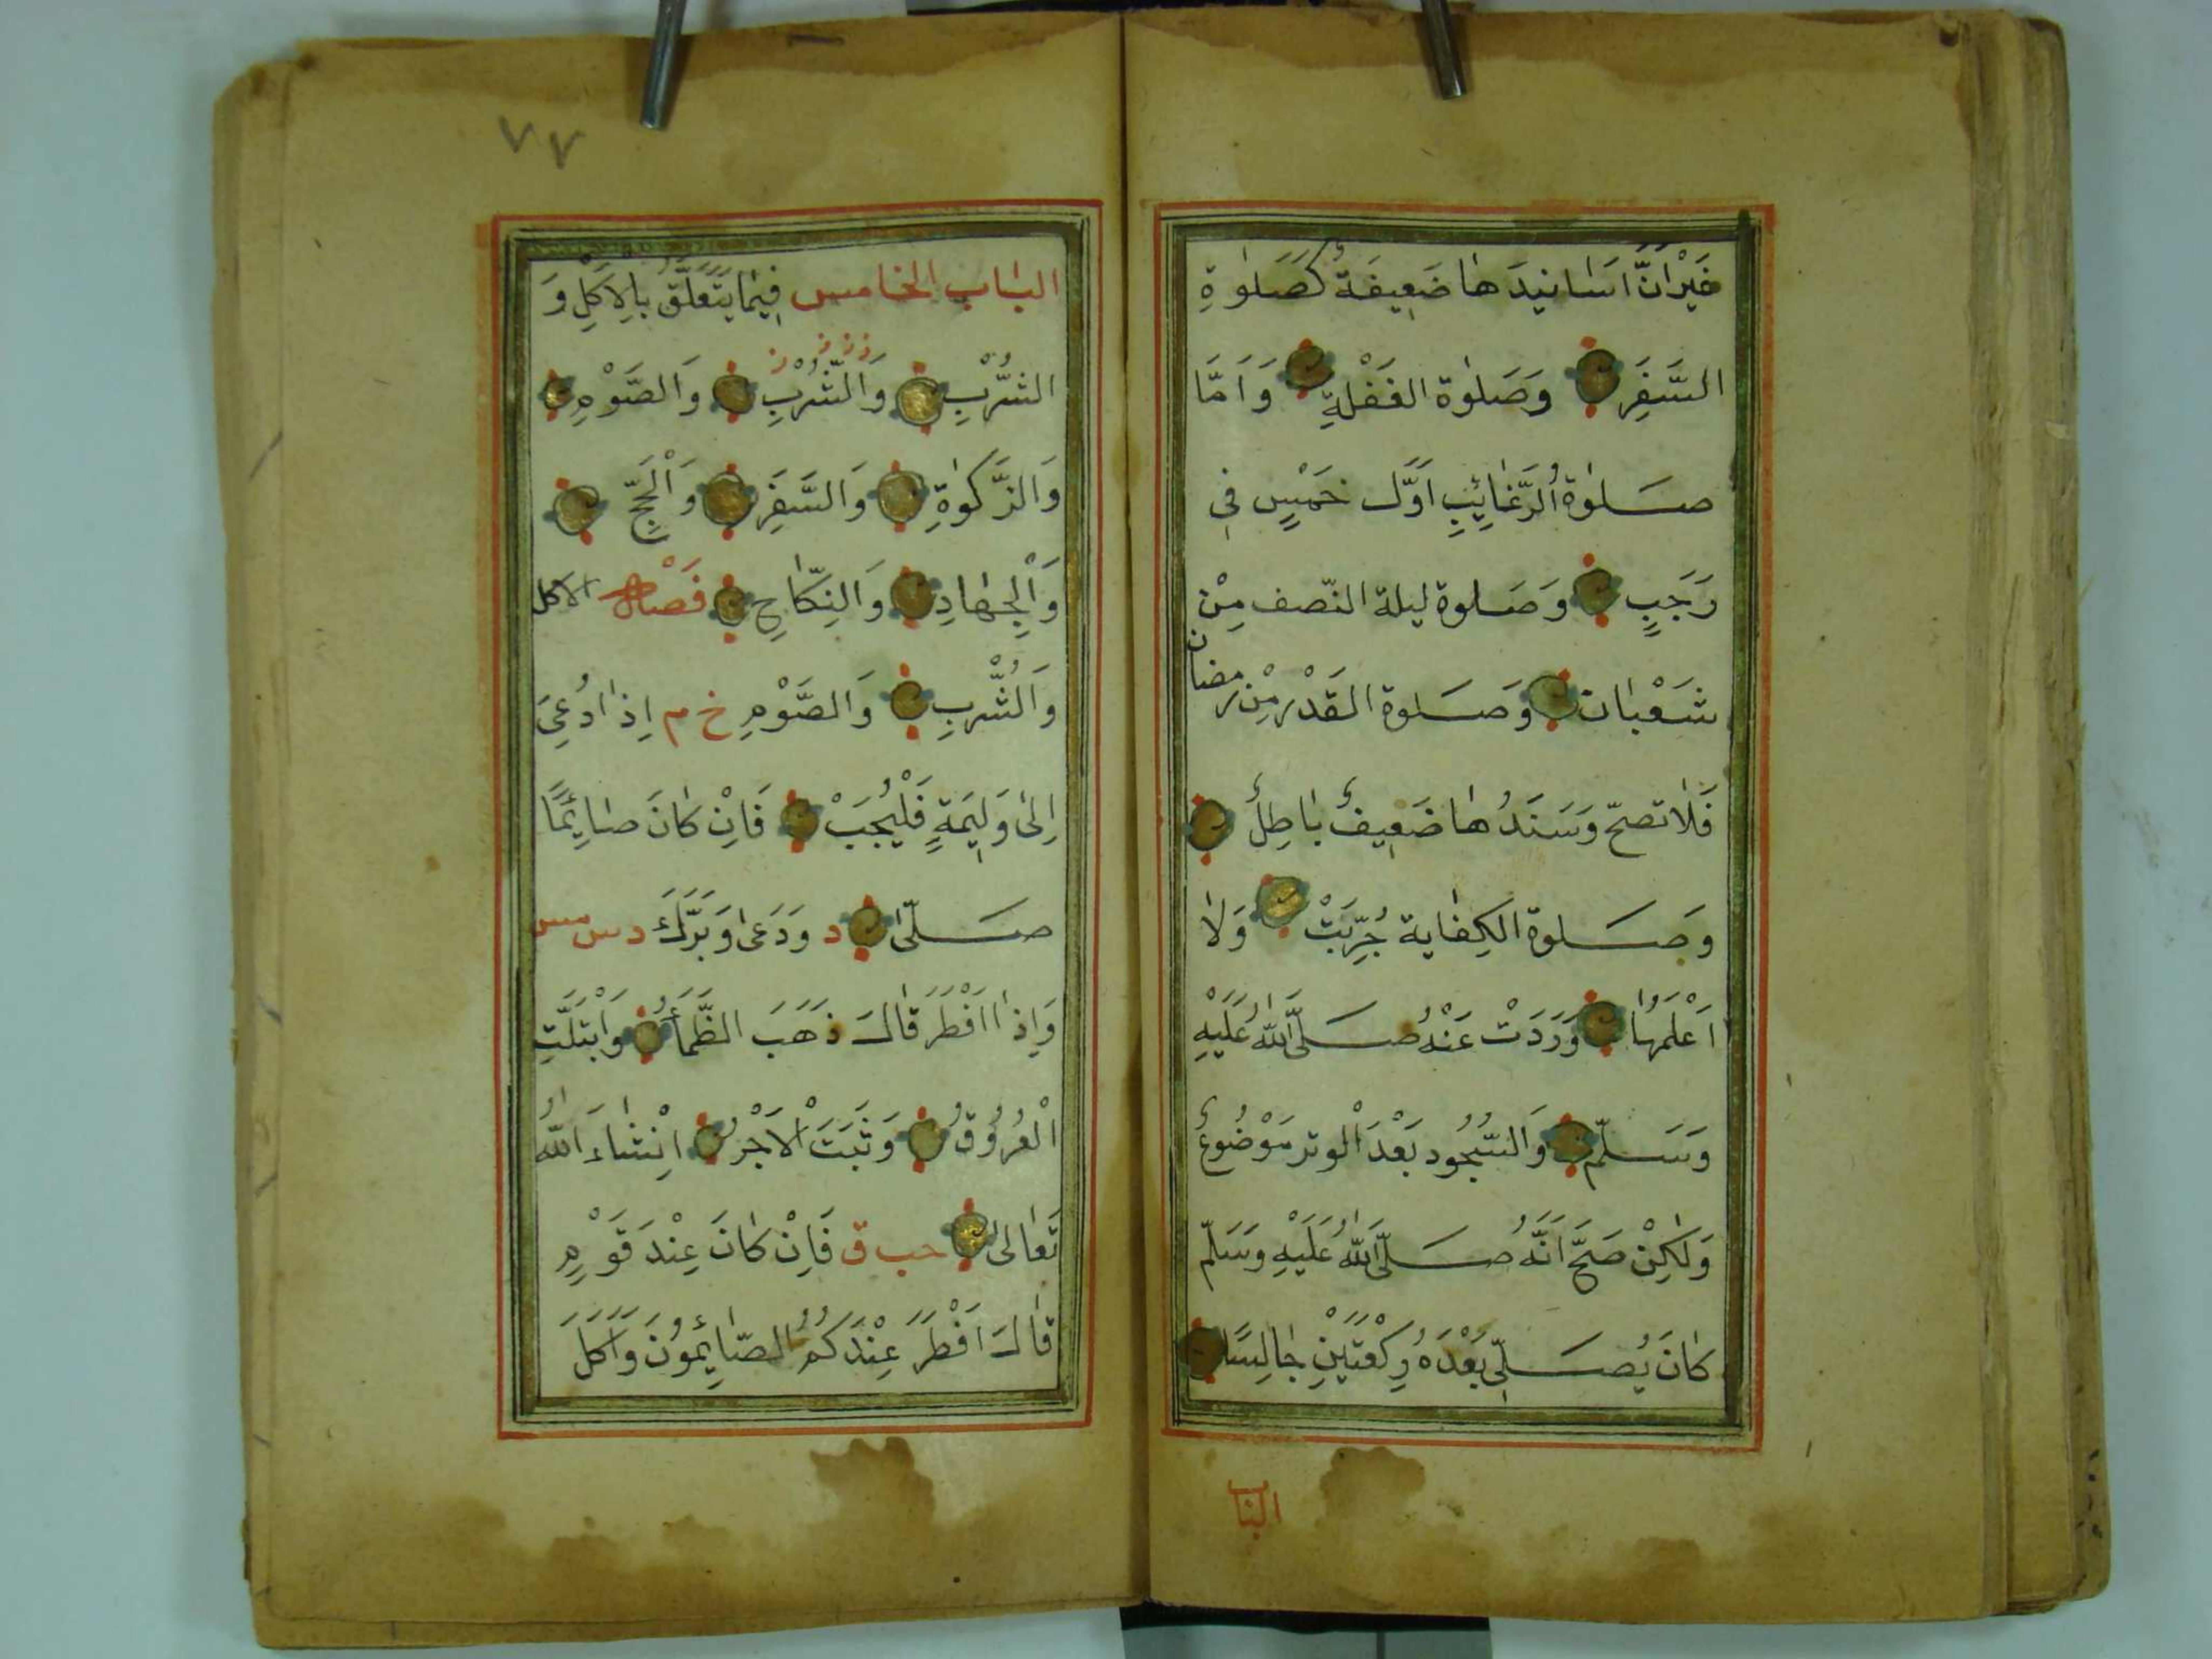 غَيْرَ اَنَّ اَسَانيدَهَا ضَعِيفَةٌ كَصَلٰوةِ
السَّفَرِ وَصَلٰوة الغَفْلَةِ وَاَمَّا
صَلٰوة الرَّغَائِبِ اَوَّل خَمِيْسٍ فِي
رَجَبٍ وَصَلوة ليلة النّصف مِنْ
شَعْبَان وَصَلوة القَدْر مِنْ رمضان
فَلَا تصحّ وَسَنَدُهَا ضَعِيفٌ بَاطِلٌ
وَصَلوة الكِفَاية جُرِّبَتْ وَلَا
اَعْلَمُهَا وَرَدَتْ عَنْهُ صَلَّى اللّٰهُ عَلَيْهِ
وَسَلّم وَالسُّجُود بَعْدَ الْوتر مَوْضُوعٌ
وَلٰكِنْ صَحَّ اَنَّهُ صَلَّى اللّٰهُ عَلَيْهِ وَسَلّم
كَانَ يُصَلِّي بَعْدَهُ رِكْعَتَيْنِ جَالِسًا
البَاب
٧٧
البَاب الخامس فِيمَا يَتَعَلَّقُ بِالاَكْلِ وَ
الشُّرْبِ وَالشُّرْبِ وَالصَّوْمِ
وَالزَّكٰوةِ وَالسَّفَرِ وَالْحَجِّ
وَالْجِهَادِ وَالنِّكَاحِ فَصْل الاكل
وَالشُّرْبِ وَالصَّوْمِ خ م اِذَا دُعِيَ
اِلىٰ وَلِيمَةٍ فَلْيُجِبْ فَاِنْ كَانَ صَائِمًا
صَلّىٰ د وَدَعىٰ وَبَرَّكَ د س مس
وَاِذَا اَفْطَرَ قَالَ ذَهَبَ الظَّمَأُ وَابْتَلَّتِ
الْعُرُوقُ وَثَبَتَ الْاَجْرُ اِنْشَاءَ اللّٰهُ
تَعَالىٰ حب ق فَاِنْ كَانَ عِنْدَ قَوْمٍ
قَالَ اَفْطَرَ عِنْدَكُمُ الصَّائِمُونَ وَاَكَلَ